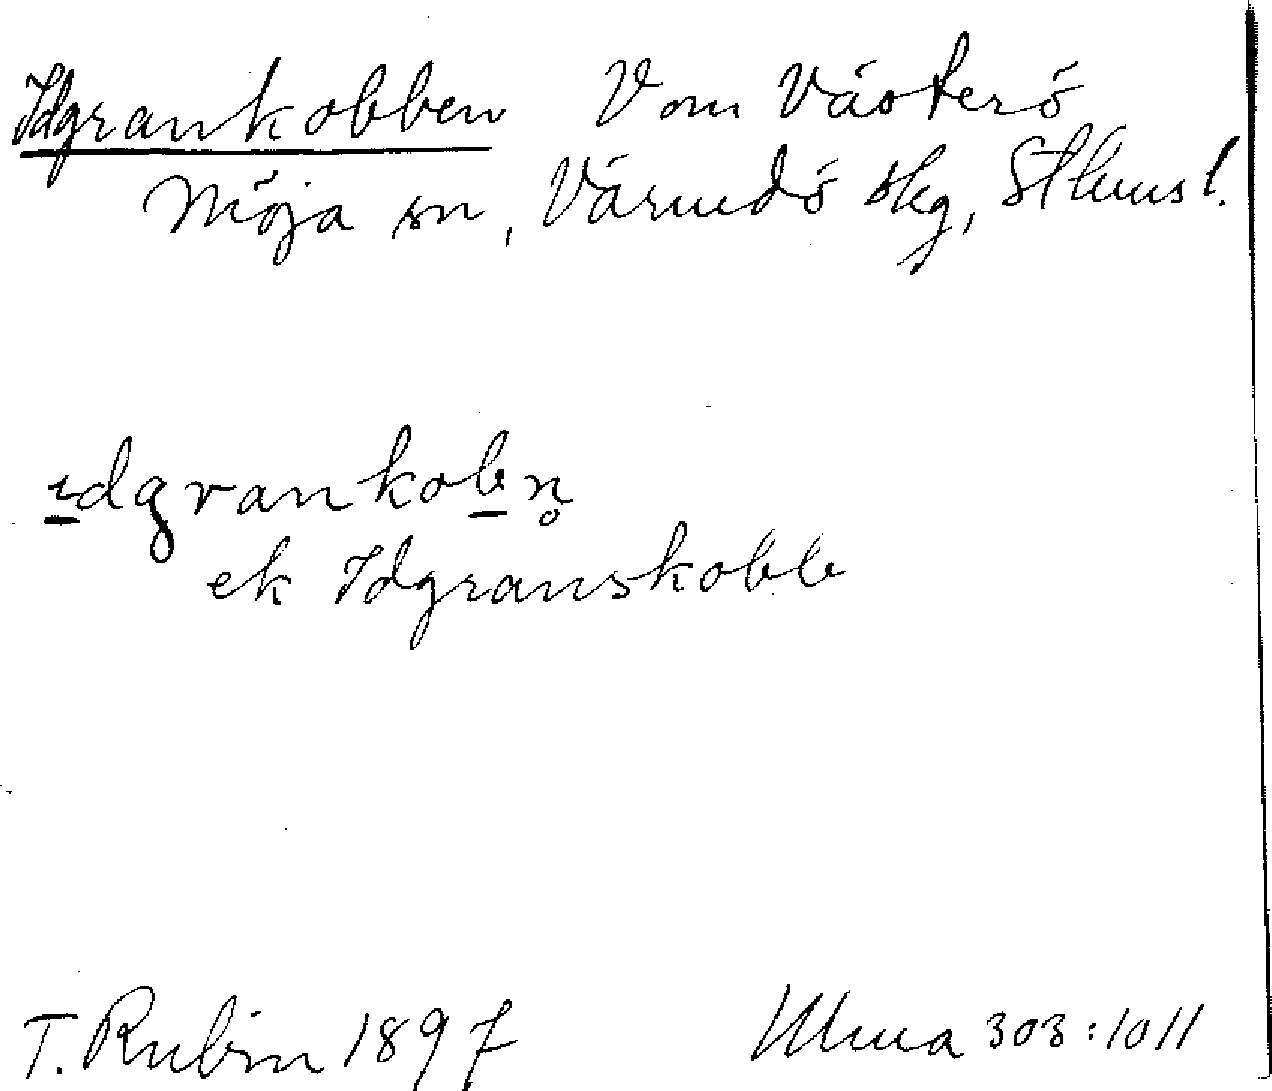 Idgrankobben V om Västerö
Möja sn, Värmdö skg, Sthms l.
ıdgrankobn̥
ek Idgranskobb
T. Rubin 1897 Ulma 303:1011